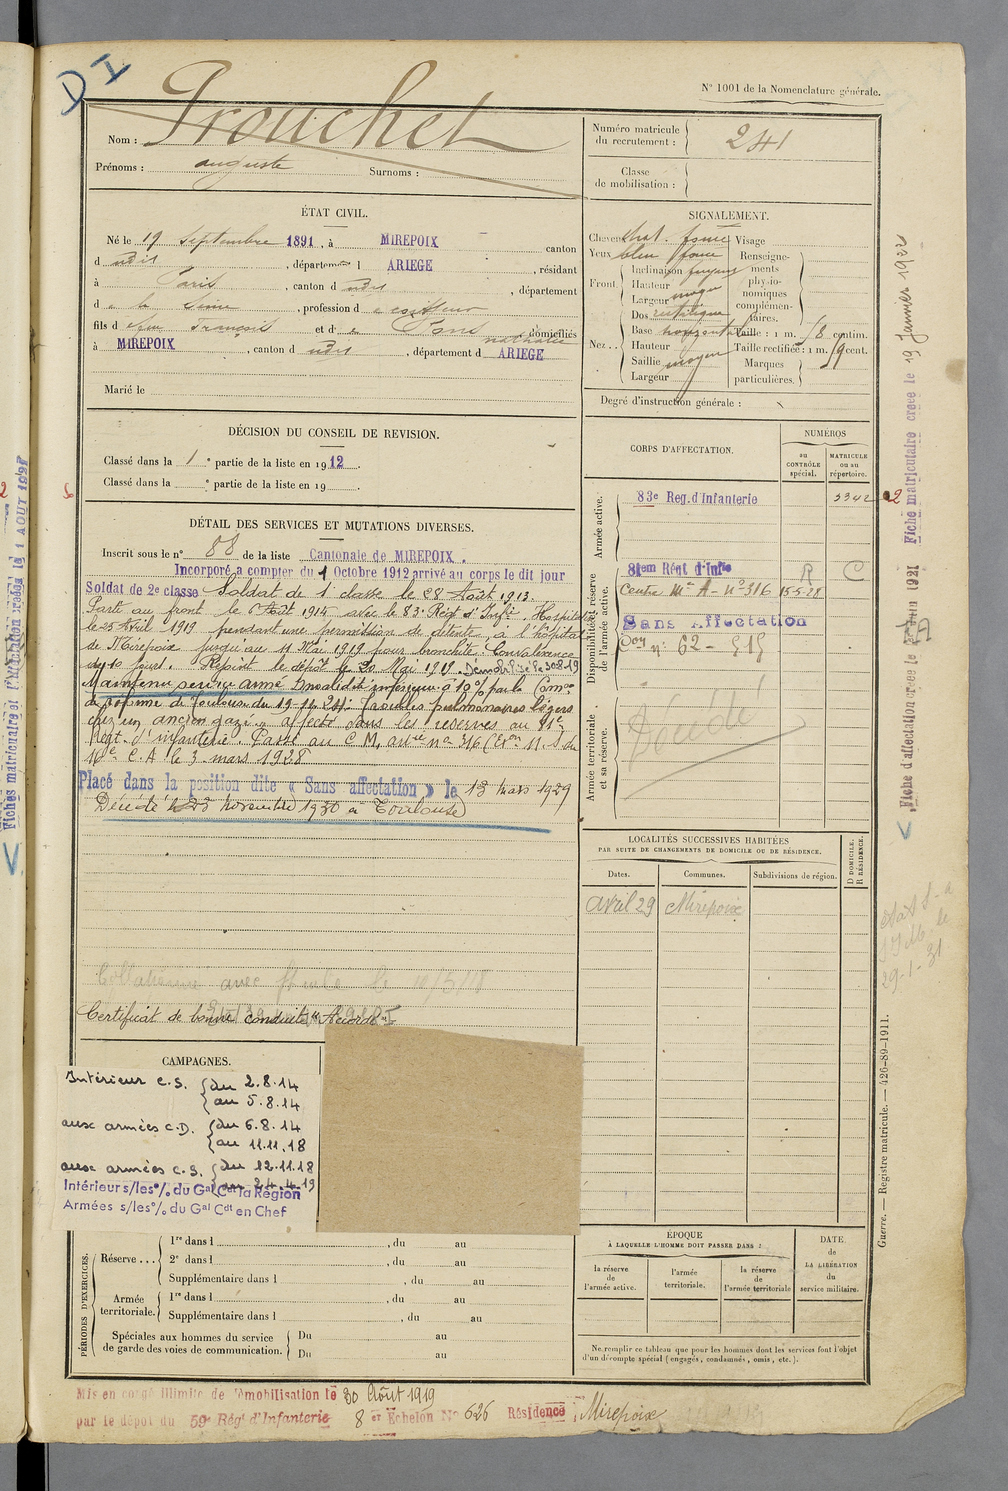 DI
N° 1001 de la Nomenclature générale.
Nom : Prouchet
Prénoms : auguste Surnoms :
Numéro matricule du recrutement : 241
Classe de mobilisation :
ÉTAT CIVIL.
Né le 19 Septembre 1891, à MIREPOIX canton
d udit, département d ARIEGE, résidant
à Paris, canton d udit, département
d e la Seine, profession d e coiffeur
fils d e feu François et d e Pons nathalie domiciliés
à MIREPOIX, canton d udit, département d ARIEGE
Marié le
SIGNALEMENT.
Cheveux chat. foncé
Yeux bleu foncé
Front. Inclinaison fuyant
Hauteur moyen
Largeur
Nez.. Dos rectiligne
Base horizontale
Hauteur
Saillie moyen
Largeur
Visage
Renseignements physionomiques complémentaires.
Taille : 1 m. 58 centim.
Taille rectifiée : 1 m. 59 cent.
Marques particulières.
Degré d'instruction générale :
DÉCISION DU CONSEIL DE REVISION.
Classé dans la 1e partie de la liste en 1912.
Classé dans la e partie de la liste en 19 .
DÉTAIL DES SERVICES ET MUTATIONS DIVERSES.
Inscrit sous le n° 88 de la liste Cantonale de MIREPOIX.
Incorporé a compter du 1 Octobre 1912 arrivé au corps le dit jour
Soldat de 2e classe Soldat de 1e classe le 28 Août 1913.
Parti au front le 6 Août 1914 avec le 83e Régt d'Infie. Hospitalisé
le 25 Avril 1919 pendant une permission de détente, à l'hôpital
de Mirepoix jusqu'au 11 Mai 1919 pour bronchite. Convalescence
de 10 jours. Rejoint le dépôt le 20 Mai 1919. Démobilisé le 30.8.19
Maintenu service armé Invalidité inférieure à 10% par la Comon
de réforme de Toulouse du 19.12.24: séquelles pulmonaires légères
chez un ancien gazé. affecté dans les réserves au 81e
Régt d'infanterie. Passé au C M, artie n° 316 (Eton 11. S du
16e C.A le 3 mars 1928
Placé dans la position dite « Sans affectation » le 13 mars 1929
Décédé le 23 novembre 1930 à Toulouse
Collationné avec feuille le 10/5/18
Certificat de bonne conduite « Accordé »
CORPS D'AFFECTATION.
NUMÉROS
au CONTRÔLE spécial.
MATRICULE ou au répertoire.
Armée active.
83e Reg. d'Infanterie 5342
Disponibilité et réserve de l'armée active.
81em Régt d'Infie R C
Centre Me A - n° 316 15-5-28
Sans Affectation
Doy n° 62 - 515
Armée territoriale et sa réserve.
Décédé
LOCALITÉS SUCCESSIVES HABITÉES
PAR SUITE DE CHANGEMENTS DE DOMICILE OU DE RÉSIDENCE.
Dates. Communes. Subdivisions de région. D DOMICILE. R RÉSIDENCE.
avril 29 Mirepoix
CAMPAGNES.
Intérieur C.S. du 2.8.14
au 5.8.14
aux armées C.D. du 6.8.14
au 11.11.18
aux armées C.S. du 12.11.18
au 24.4.19
Intérieur s/les °/. du Gal Cdt la Région
Armées s/les °/. du Gal Cdt en Chef
PÉRIODES D'EXERCICES.
Réserve... 1re dans l , du au
2e dans l , du au
Supplémentaire dans l , du au
Armée territoriale. 1re dans l , du au
Supplémentaire dans l , du au
Spéciales aux hommes du service de garde des voies de communication. Du au
Du au
ÉPOQUE
À LAQUELLE L'HOMME DOIT PASSER DANS :
la réserve de l'armée active.
l'armée territoriale.
la réserve de l'armée territoriale
DATE de LA LIBÉRATION du service militaire.
Ne remplir ce tableau que pour les hommes dont les services font l'objet
d'un décompte spécial (engagés, condamnés, omis, etc.).
Mis en congé illimité de démobilisation le 30 Août 1919
par le dépôt du 59e Régt d'Infanterie 8e Echelon N° 626 Résidence : Mirepoix
Fiche matriculaire creée le 19 Janvier 1922
Fiche d'affectation creée le Juin 1921
29-1-31
Guerre. — Registre matricule. — 426-89-1911.
Fiches matriculaire et d'affectation creées le 1 AOUT 1927